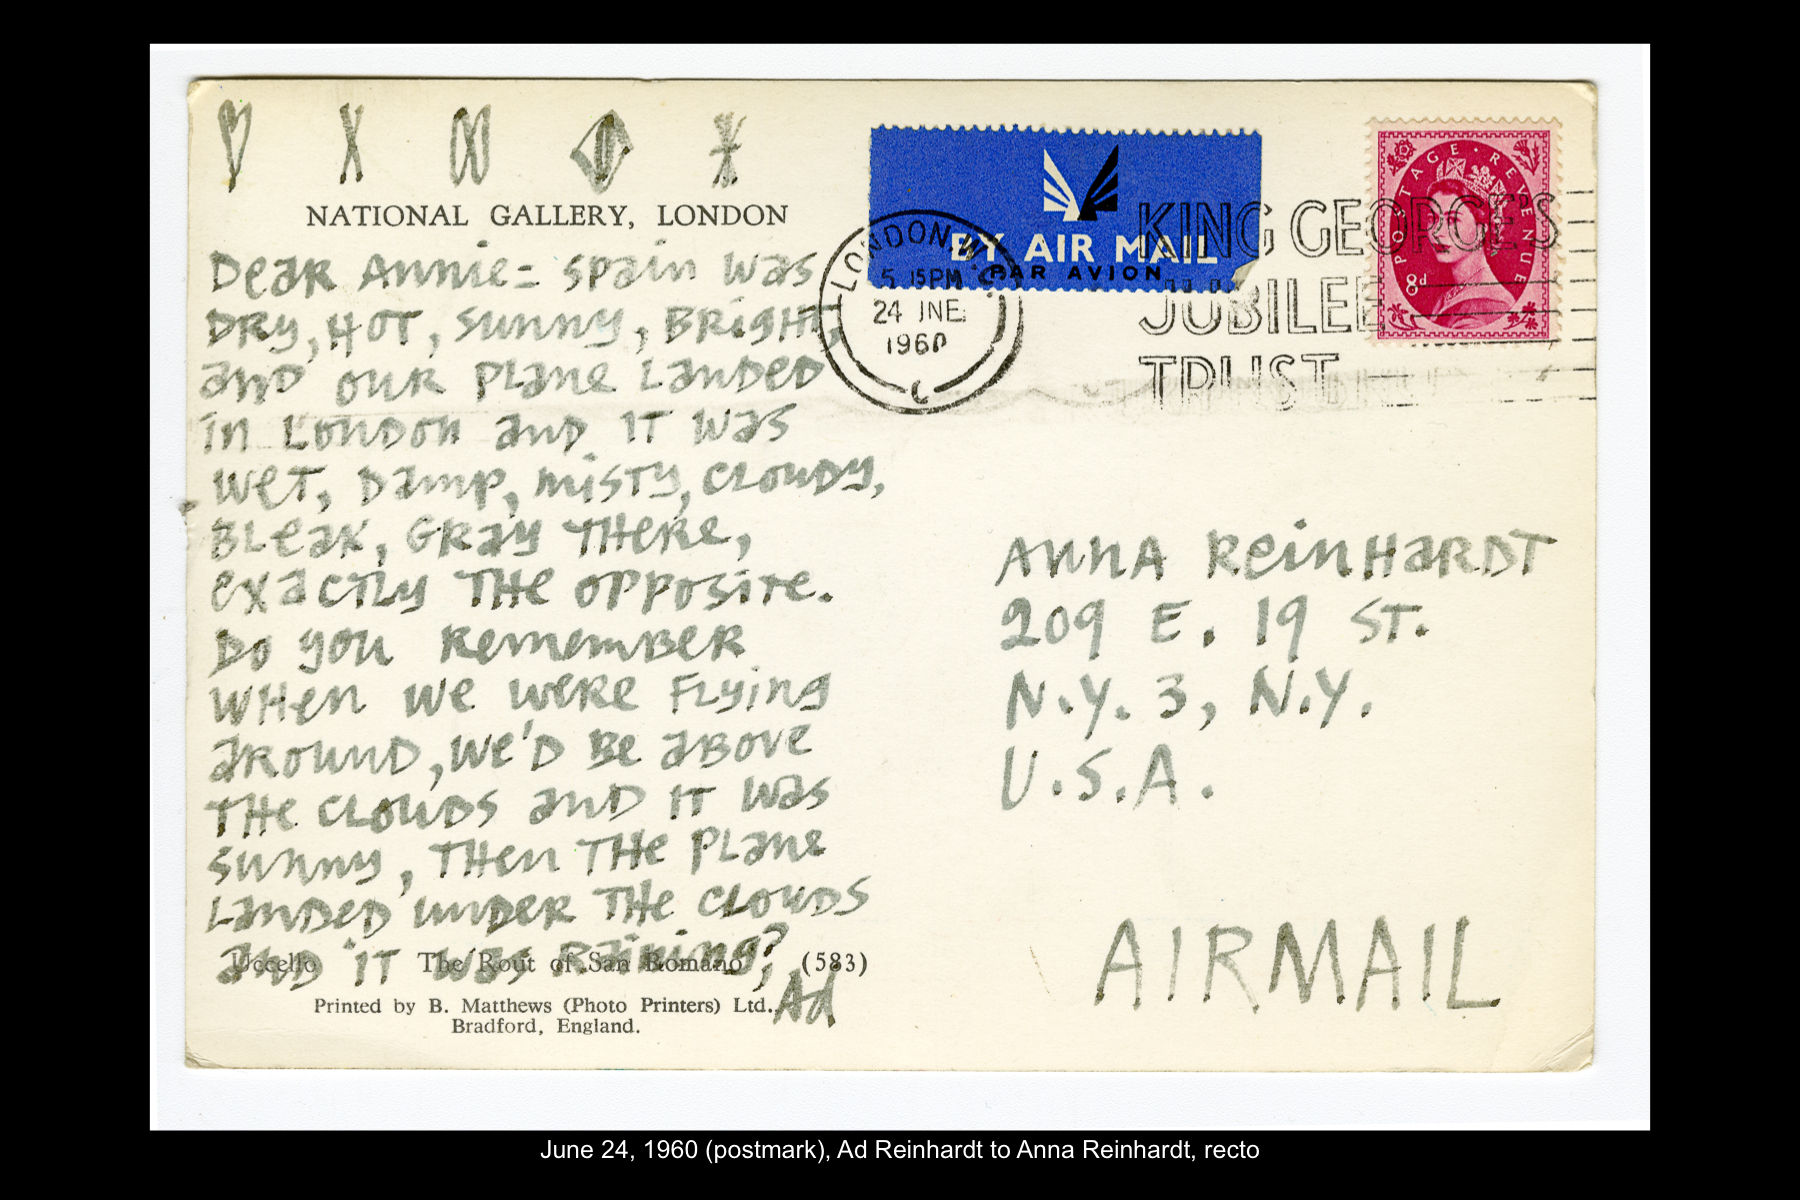 NATIONAL GALLERY, LONDON
Dear Annie= Spain was
dry, hot, sunny, bright,
and our plane landed
in London and it was
wet, damp, misty, cloudy,
bleak, gray there,
exactly the opposite.
Do you remember
when we were flying
around, we'd be above
the clouds and it was
sunny, then the plane
landed under the clouds
and it was raining?
Ad
Uccello The Rout of San Romano (583)
Printed by B. Matthews (Photo Printers) Ltd.,
Bradford, England.
BY AIR MAIL
PAR AVION
LONDON
5 15PM
24 JNE
1960
KING GEORGE'S
JUBILEE
TRUST
POSTAGE · REVENUE
8d
Anna Reinhardt
209 E. 19 St.
N.Y. 3, N.Y.
U.S.A.
AIRMAIL
June 24, 1960 (postmark), Ad Reinhardt to Anna Reinhardt, recto